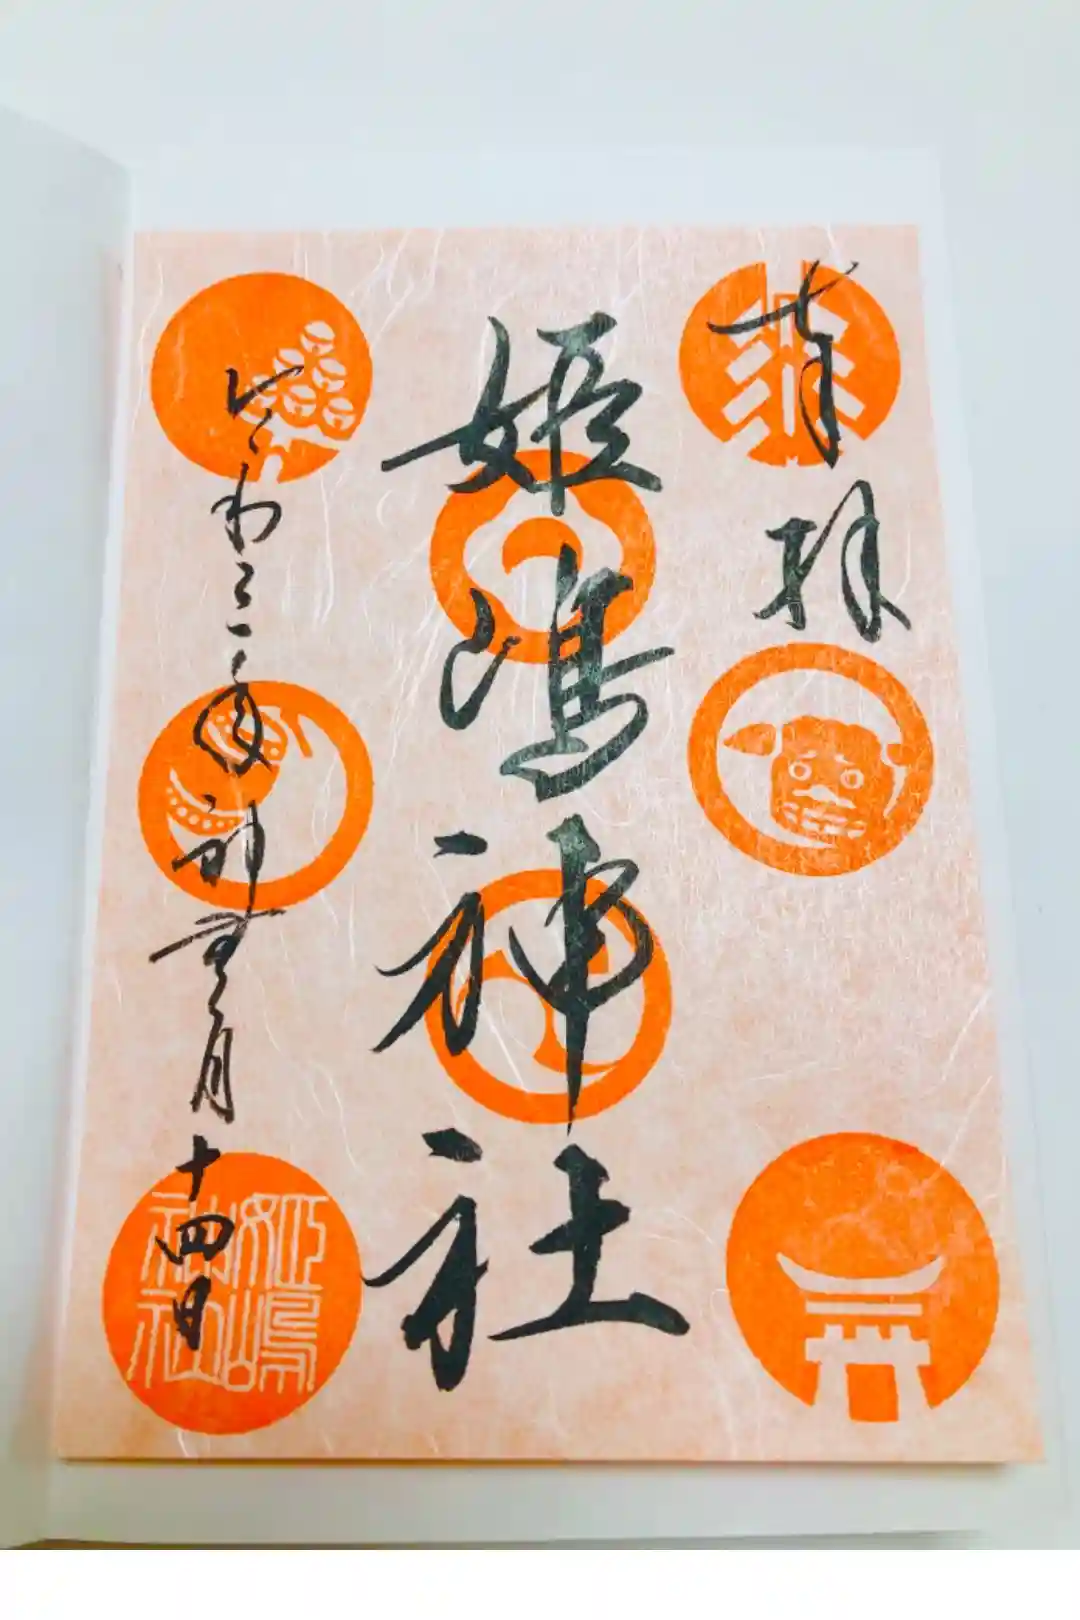 奉拝
姫嶋神社
令和三年神無月十四日
姫嶋
神社